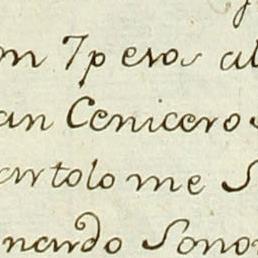 on 7 peros al
an Cenicero
artolome S
nardo Sono